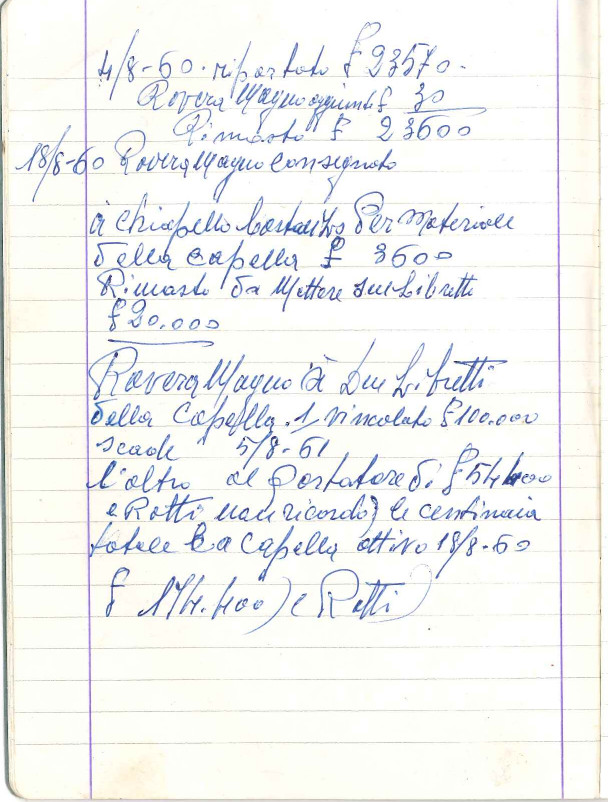 4/8-60. riportato £ 23570-
Rovera Magno aggiunti £ 30
Rimasto £ 23600
18/8-60 Rovera Magno consegnato
à Chiapello Costanzo Per Materiale
della Capella £ 3600
Rimasto da Mettere sui Libretti
£ 20.000
Rovera Magno à Due Libretti
della Capella. 1 vincolato £ 100.000
scade 5/8-61
l'altro al Portatore di £ 54400
e Rotti non ricordo) le centinaia
totale La Capella attivo 18/8-60
£ 174.400) e Rotti)